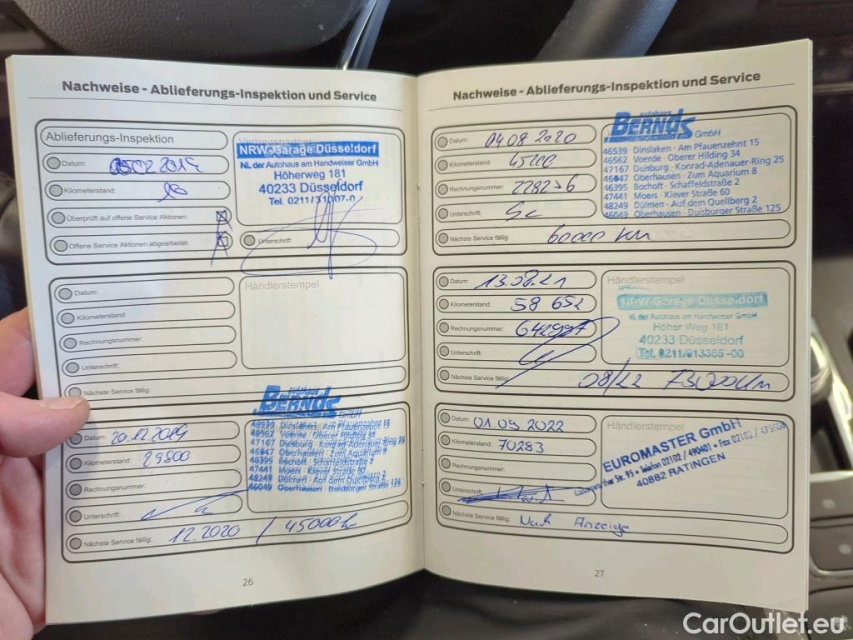 Nachweise - Ablieferungs-Inspektion und Service
Ablieferungs-Inspektion
Datum: 05.02.2019
Kilometerstand: 10
Überprüft auf offene Service Aktionen:
Offene Service Aktionen abgearbeitet:
NRW-Garage Düsseldorf
NL der Autohaus am Handweiser GmbH
Höherweg 181
40233 Düsseldorf
Tel. 0211/
Unterschrift:
Datum:
Kilometerstand:
Rechnungsnummer:
Unterschrift:
Nächste Service fällig:
Händlerstempel
Datum: 20.12.2019
Kilometerstand: 29800
Rechnungsnummer:
Unterschrift:
Nächste Service fällig: 12.2020 / 45000
autohaus
BERNDS GmbH
46539 Dinslaken · Am Pfauenzehnt 15
46562 Voerde · Oberer Hilding 34
47167 Duisburg · Konrad-Adenauer-Ring 25
46047 Oberhausen · Zum Aquarium 8
46395 Bocholt · Schaffeldstraße 2
47441 Moers · Klever Straße 60
48249 Dülmen · Auf dem Quellberg 2
46049 Oberhausen · Duisburger Straße 125
26
Nachweise - Ablieferungs-Inspektion und Service
Datum: 04.08.2020
Kilometerstand: 45100
Rechnungsnummer: 228276
Unterschrift:
Nächste Service fällig: 60000 km
autohaus
BERNDS GmbH
46539 Dinslaken · Am Pfauenzehnt 15
46562 Voerde · Oberer Hilding 34
47167 Duisburg · Konrad-Adenauer-Ring 25
46047 Oberhausen · Zum Aquarium 8
46395 Bocholt · Schaffeldstraße 2
47441 Moers · Klever Straße 60
48249 Dülmen · Auf dem Quellberg 2
46049 Oberhausen · Duisburger Straße 125
Datum: 13.08.21
Kilometerstand: 58 652
Rechnungsnummer:
Unterschrift:
Nächste Service fällig: 08/22
Händlerstempel
NRW-Garage Düsseldorf
NL der Autohaus am Handweiser GmbH
Höher Weg 181
40233 Düsseldorf
Tel. 0211/913385-00
Datum: 01.09.2022
Kilometerstand: 70283
Rechnungsnummer:
Unterschrift:
Nächste Service fällig: Nach Anzeige
Händlerstempel
EUROMASTER GmbH
Str. 95 • Telefon 02102 / 490401 • Fax 02102 /
40882 RATINGEN
27
CarOutlet.eu